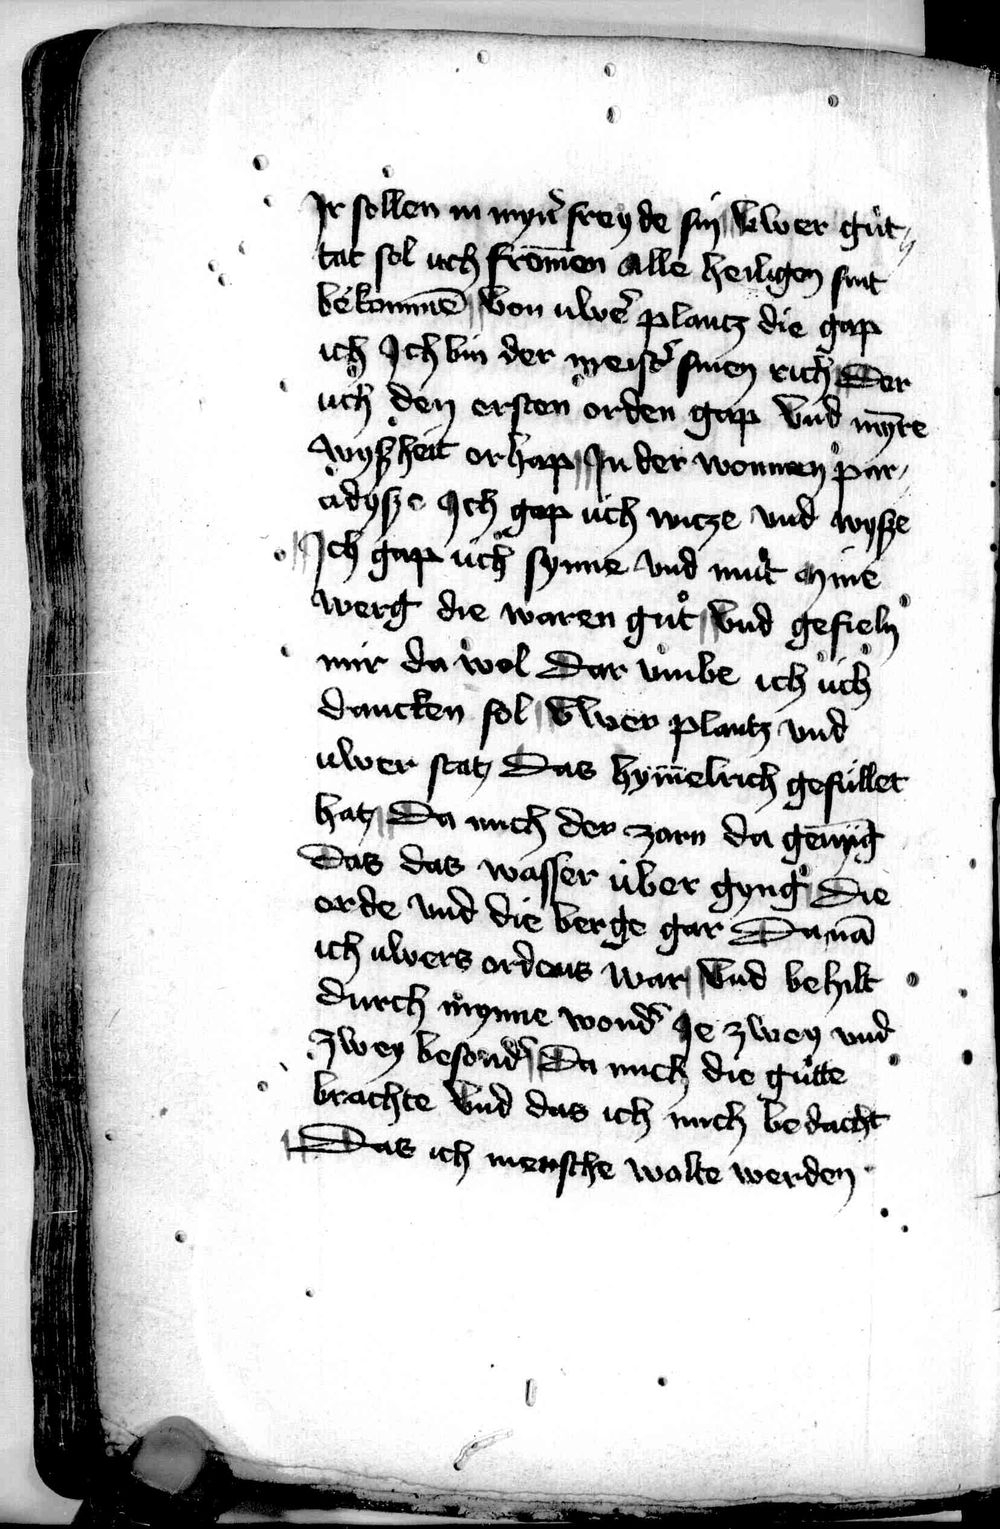 Jr sollen in myn̄ freyde sin Vwer gůt
tat sol uch frōmen Alle heiligen sint
bekommē Von uwer̄ plantz die gap
ich Jch bin der meist̄ sinen rich Der
uch den ersten orden gap Vnd myne
wyßheit erhap Jn der wonnen par
adyße Jch gap uch witze vnd wyße
Jch gap uch synne vnd můt mine
werg die waren gůt Vnd gefieln
mir da wol Dar vmbe ich üch
dancken sol Vwer plantz vnd
uwer statz Das hym̄elrich gefüllet
hatz Da mich der zorn da
Das das wasser über gyng Die
erde vnd die berge gar Da nā
ich uwers ordens war Vnd behilt
durch mynne wond̄ Je zwey vnd
Zwey besond̄ Da mich die gůtte
brachte Vnd das ich mich bedacht
Das ich mensche wolte werden